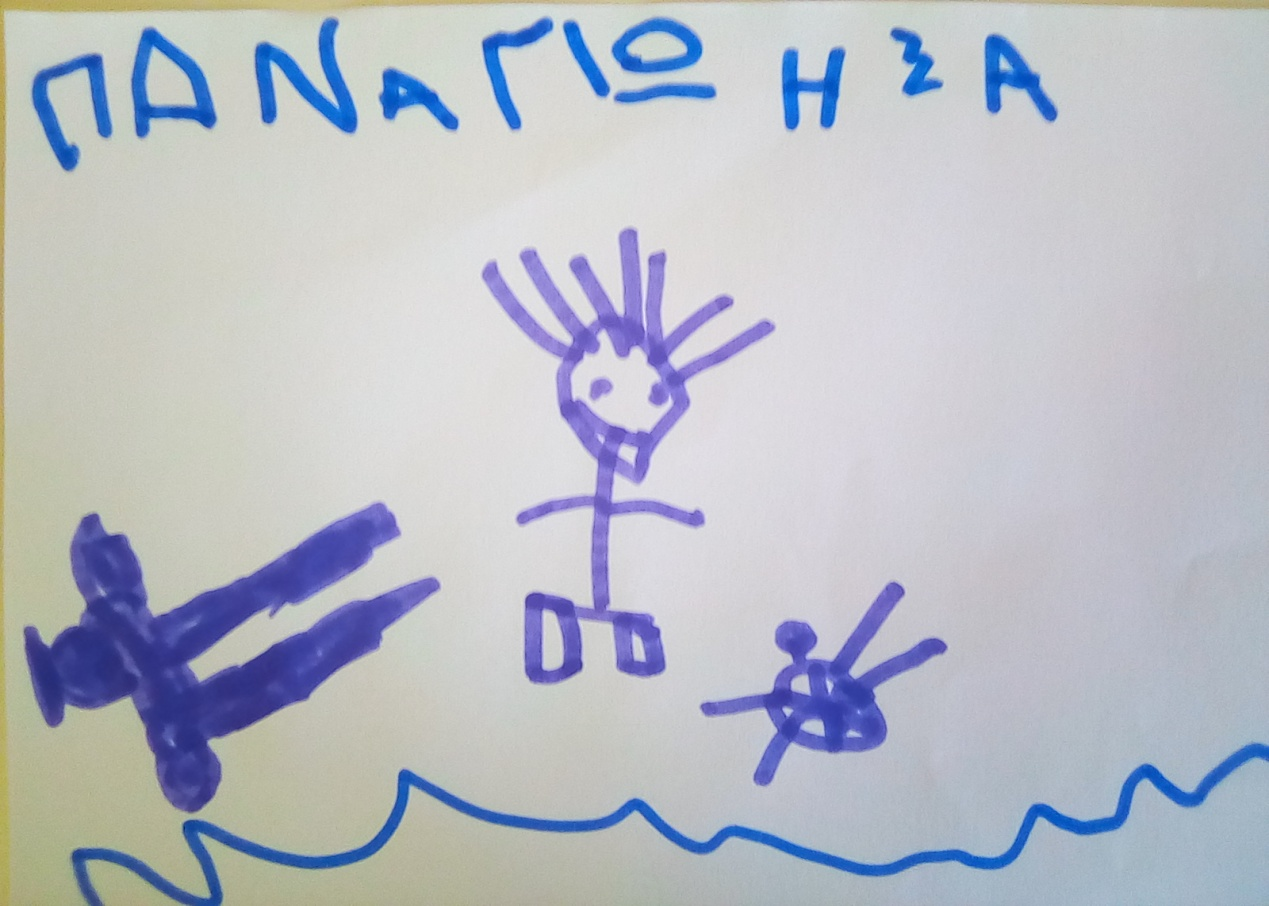 ΠΑΝΑΓΙΩ ΗΣ Α